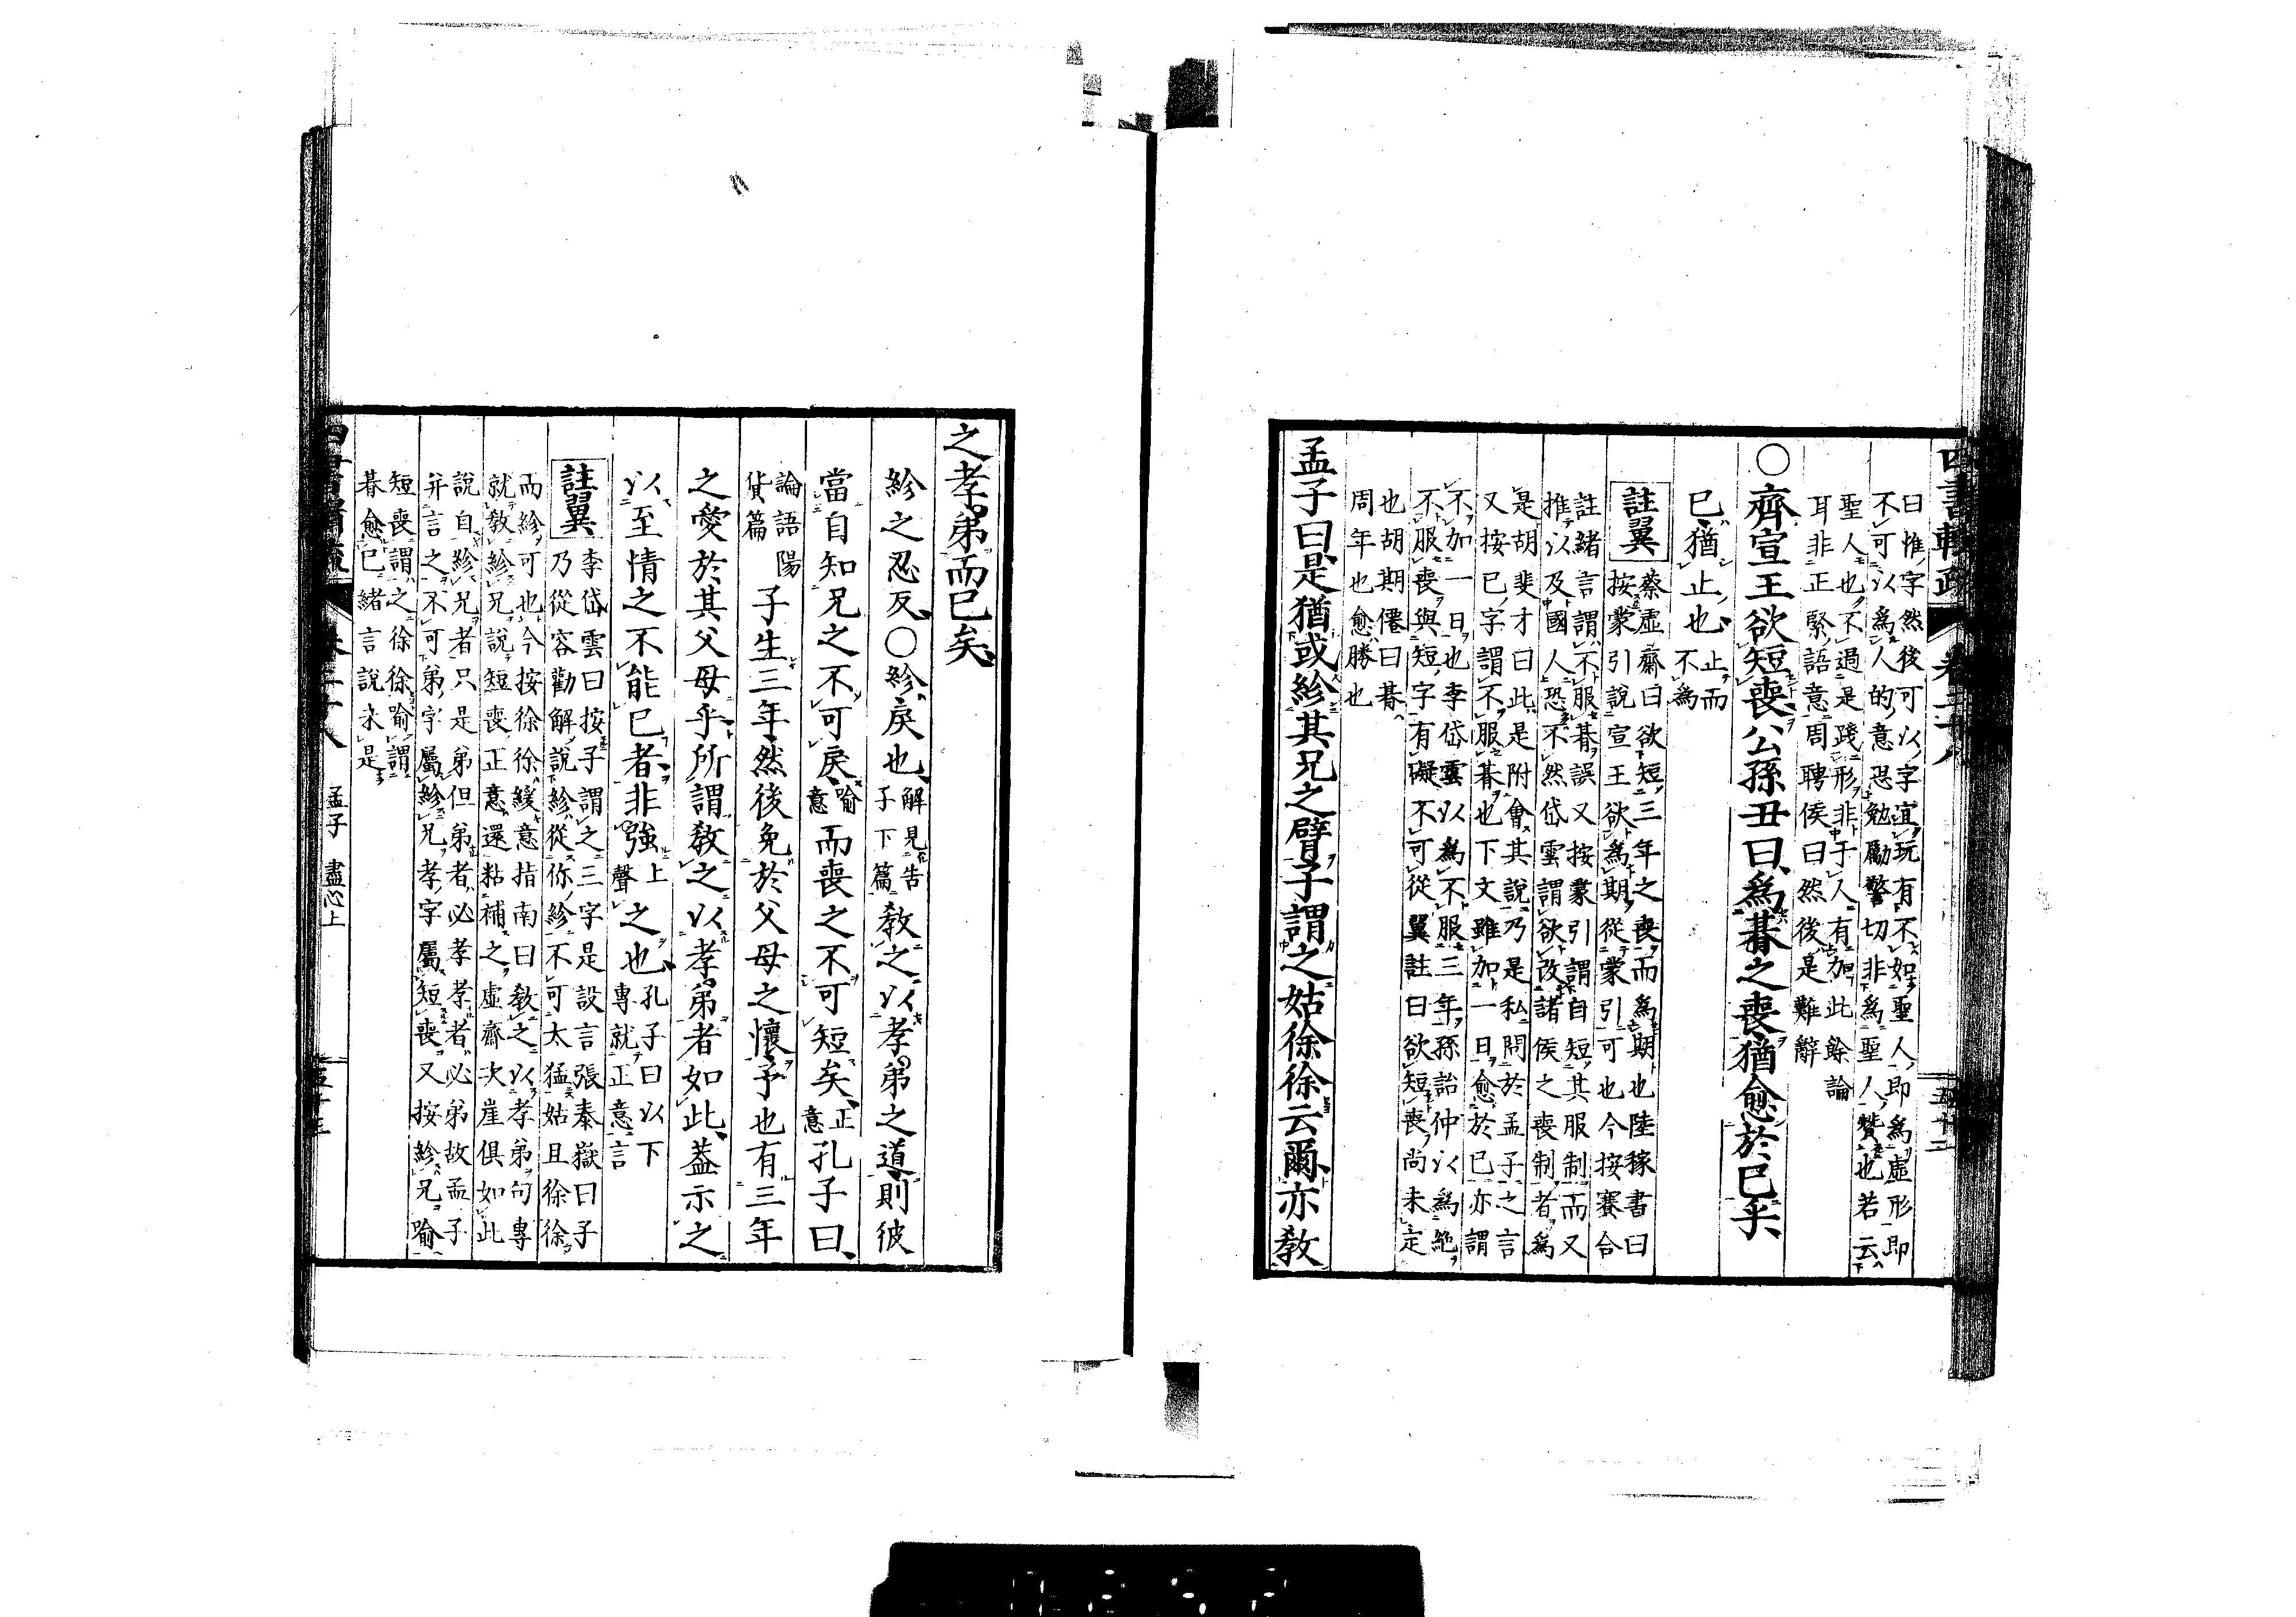 曰惟字然後可以字宜玩有不如聖人即為虛形即
不可以為人的意恐勉勵警切非為聖人贊也若云
聖人也不過是踐形非于人有加此餘論
耳非正緊語意周聘侯曰然後是難辭
○齊宣王欲短喪公孫丑曰為朞之喪猶愈於已乎
已猶止也止而
不為
註翼蔡虛齋曰欲短三年之喪而為期也陸稼書曰
按蒙引說宣王欲為期從蒙引可也今按賽合
註緒言謂不服朞誤又按蒙引謂自短其服制而又
推以及國人恐不然岱雲謂欲改諸侯之喪制者為
是胡斐才曰此是附會其說乃是私問於孟子之言
又按已字謂不服朞也下文雖加一日愈於已亦謂
不加一日也李岱雲以為不服三年孫詒仲以為絕
不服喪與短字有礙不可從翼註曰欲短喪尚未定
也胡期僊曰朞
周年也愈勝也
孟子曰是猶或紾其兄之臂子謂之姑徐徐云爾亦教
之孝弟而已矣
紾之忍反○紾戾也解見告
子下篇教之以孝弟之道則彼
當自知兄之不可戾喻
意而喪之不可短矣正
意孔子曰
論語陽
貨篇子生三年然後免於父母之懷予也有三年
之愛於其父母乎所謂教之以孝弟者如此蓋示之
以至情之不能已者非強上
聲之也孔子曰以下
專就正意言
註翼李岱雲曰按子謂之三字是設言張秦嶽曰子
乃從容勸解說紾從你紾不可太猛姑且徐徐
而紾可也今按徐徐緩意指南曰教之以孝弟句專
就教紾兄說短喪正意還粘補之虛齋次崖俱如此
說自紾兄者只是弟但弟者必孝孝者必弟故孟子
并言之不可弟字屬紾兄孝字屬短喪又按紾兄喻
短喪謂之徐徐喻謂
朞愈已緒言說未是
孟子 盡心上